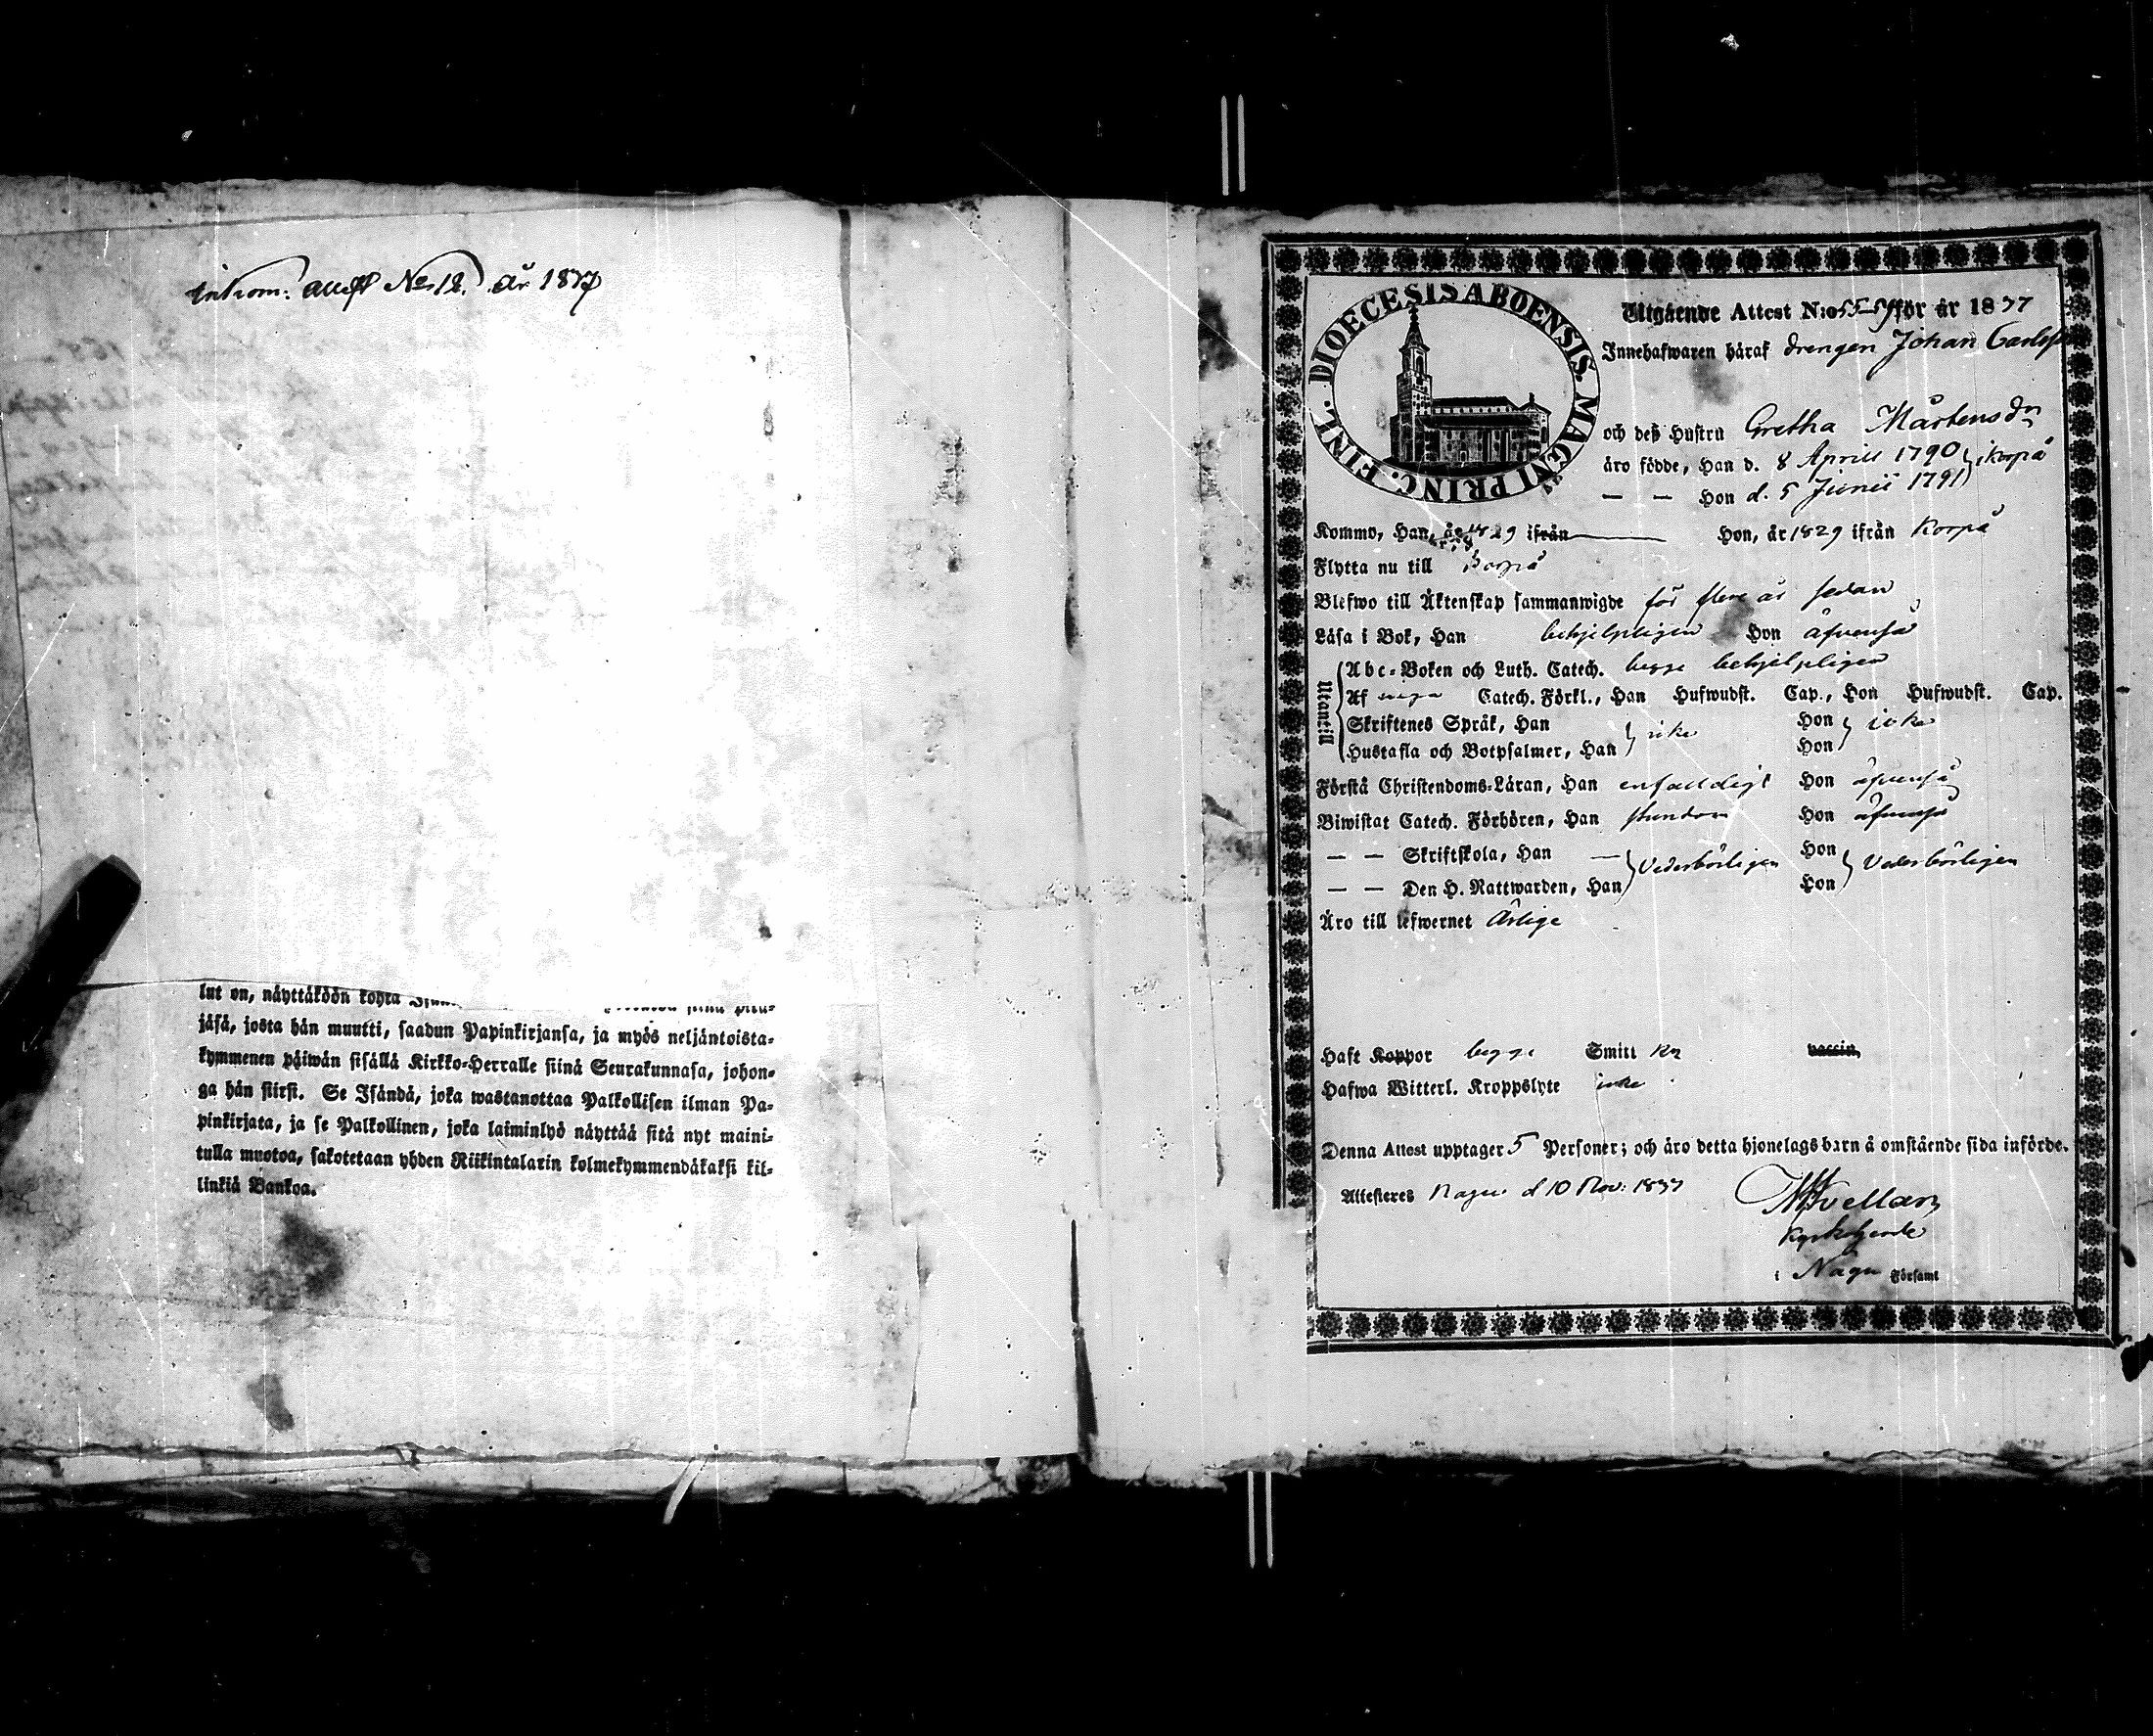 inkom: attest No 12. år 1837
lut on, näyttäköön kohta
jäsä, josta hän muutti, saadun Papinkirjansa, ja myös neljäntoista-
kymmenen päiwän sisällä Kirkko-Herralle siinä Seurakunnasa, johon-
ga hän siirsi. Se Isändä, joka wastanottaa Palkollisen ilman Pa-
pinkirjata, ja se Palkollinen, joka laiminlyö näyttää sitä nyt maini-
tulla muotoa, sakotetaan yhden Riikintalarin kolmekymmendäkaksi kil-
linkiä Bankoa.
DIOECESIS ABOENSIS. MAGNI PRINC. FINL.
Utgående Attest N:o 55-59 för år 1837
Innehafwaren häraf drengen Johan Carlsson
och deß Hustru Gretha Mårtensdr
äro födde, Han d. 8 Aprill 1790 } i Korpå
— — Hon d. 5 Junii 1791
Kommo, Han, år 1829 ifrån Hon, år 1829 ifrån Korpå
Flytta nu till Korpå
Blefwo till Äktenskap sammanwigde för flere år sedan
Läsa i Bok, Han behjelpligen Hon äfvenså
Utantill
Abc-Boken och Luth. Catech. begge behjelpligen
Af inga Catech. Förkl., Han Hufwudst. Cap., Hon Hufwudst. Cap.
Skriftenes Språk, Han } icke Hon } icke
Hustafla och Botpsalmer, Han Hon
Förstå Christendoms-Läran, Han enfaldigt Hon äfvenså
Biwistat Catech. Förhören, Han stundom Hon äfvenså
— — Skriftskola, Han — } Vederbörligen Hon } Vederbörligen
— — Den H. Nattwarden, Han Hon
Äro till lefwernet Ärlige
Haft Koppor begge Smitt Kr vaccin.
Hafwa Witterl. Kroppslyte icke
Denna Attest upptager 5 Personer; och äro detta hjonelags barn å omstående sida införde.
Attesteres Nagu d 10 Nov: 1837
Kyrkoherde
i Nagu Församl